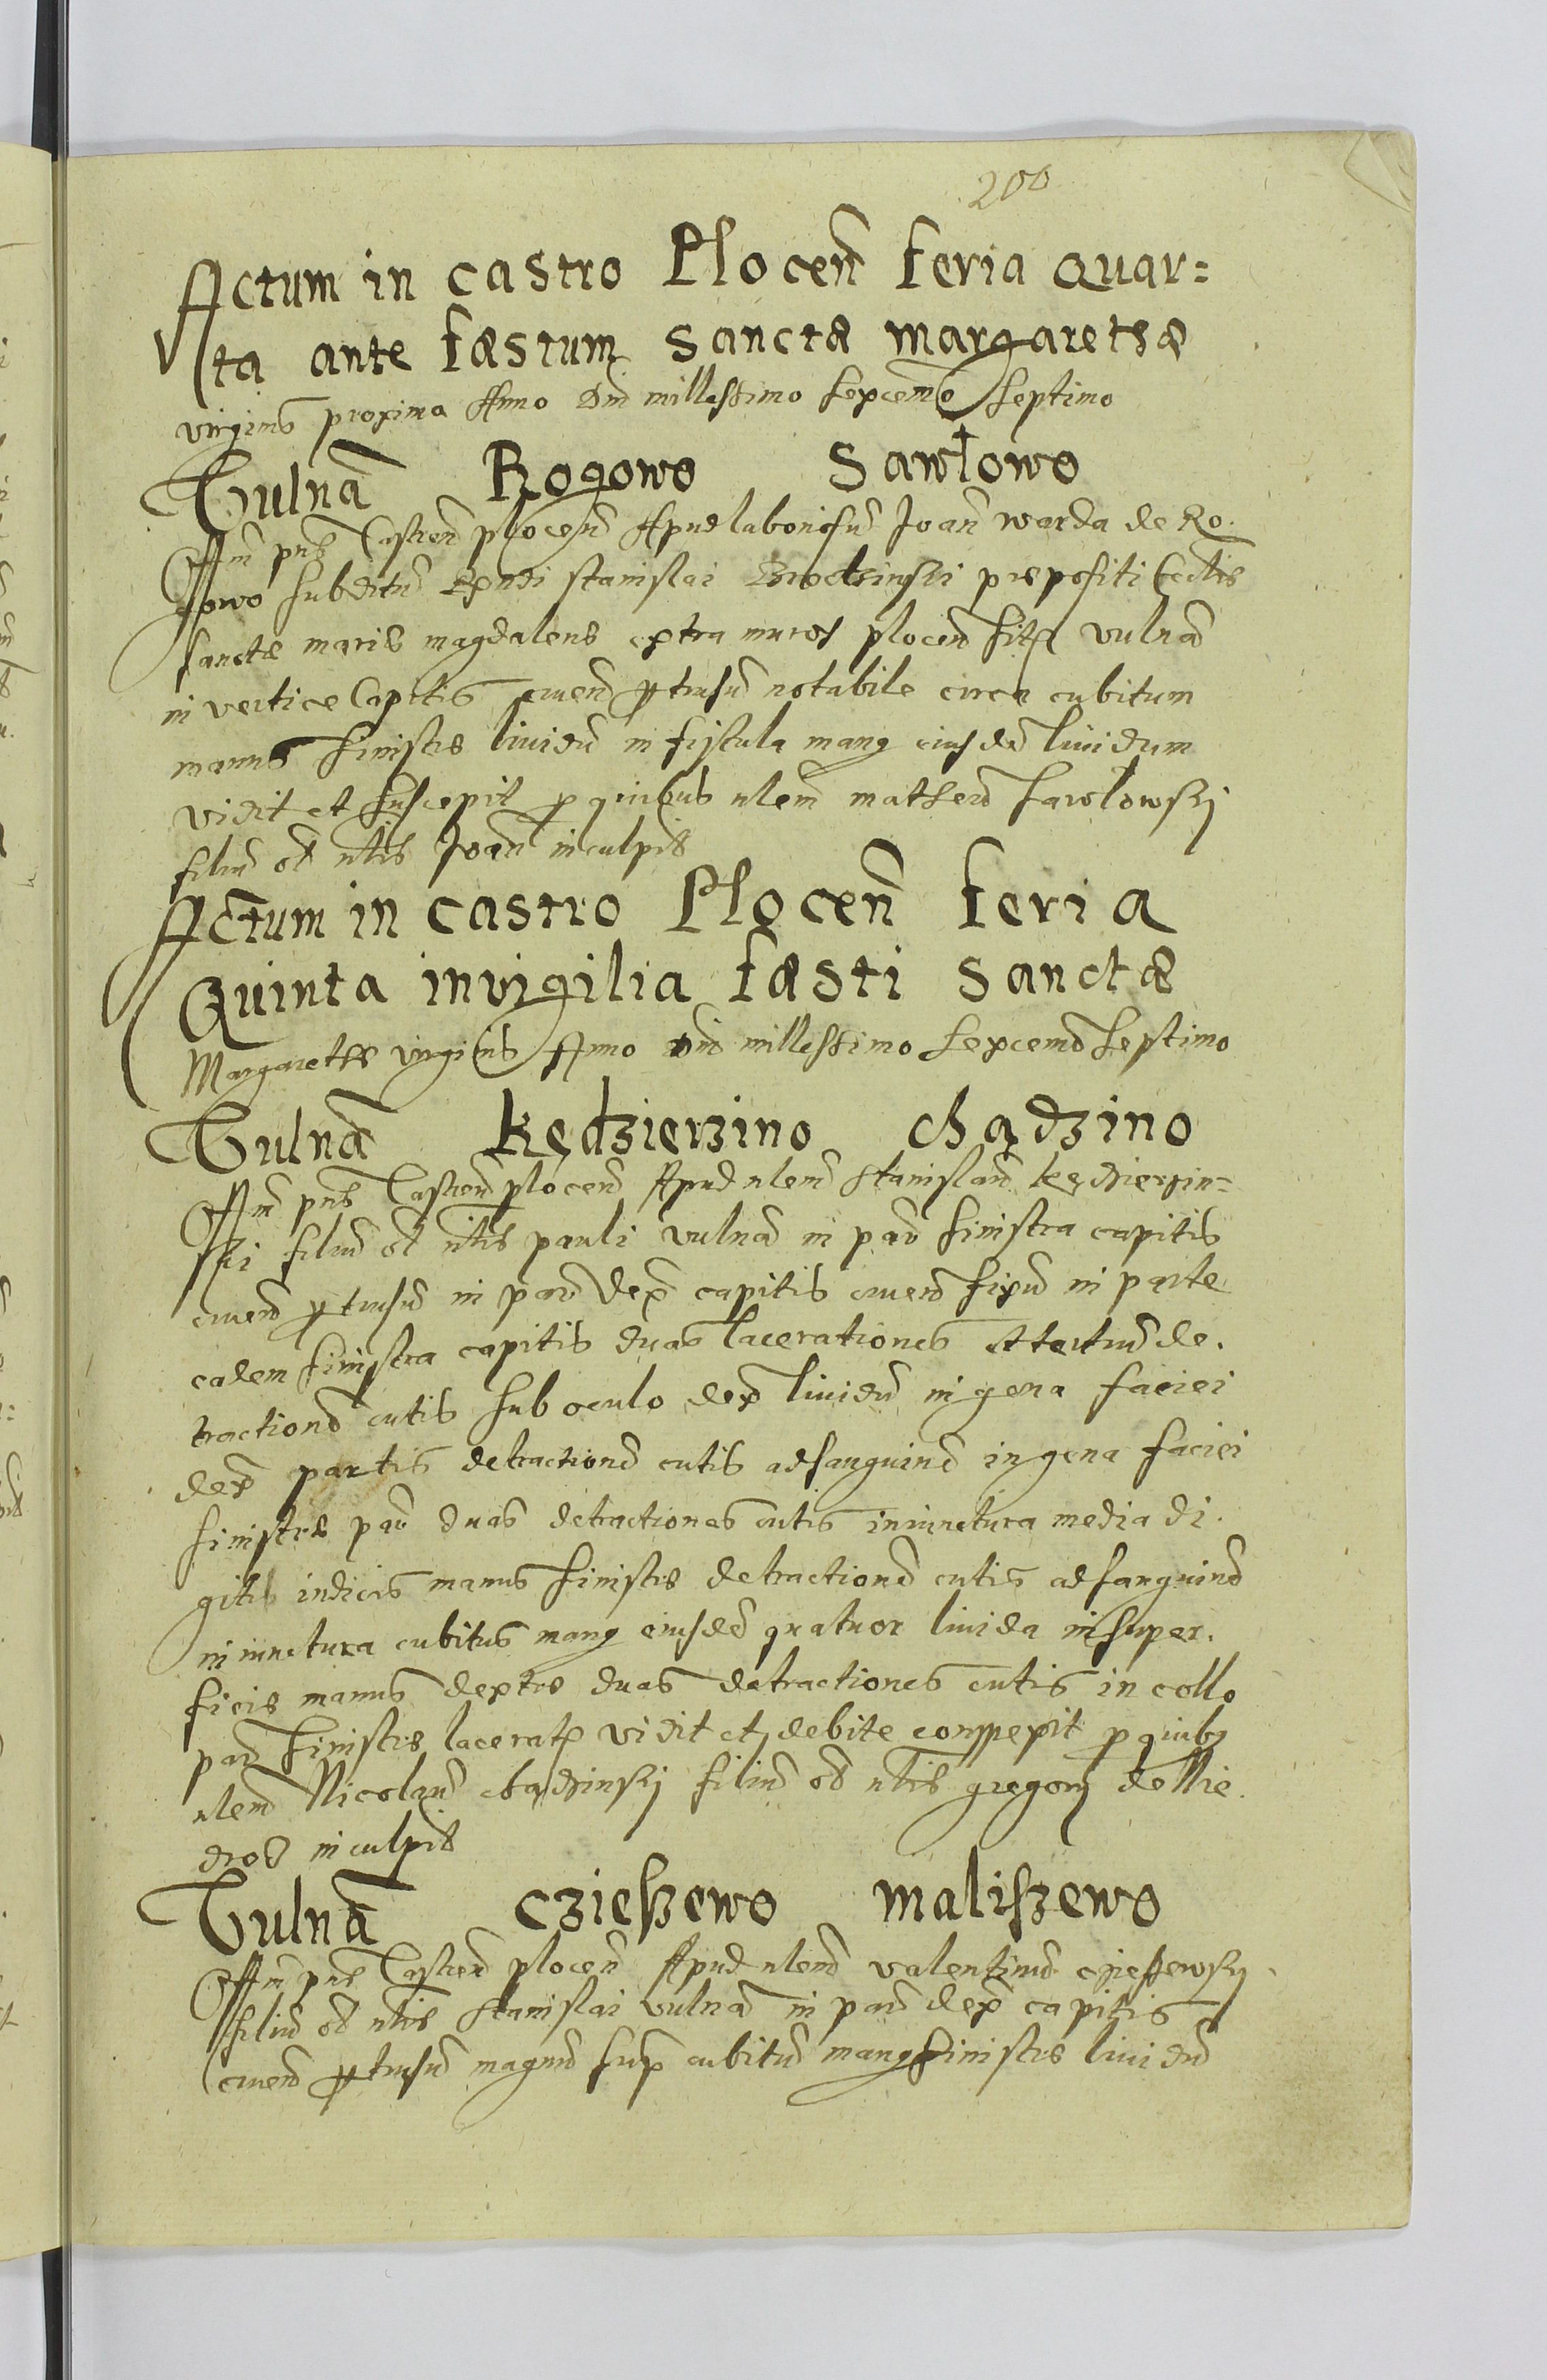 200
Actum in castro Plocen̄ feria quar=
ta ante fæstum sanctæ margarethæ
virginis proxima Anno Dni millessimo sexcentmo septimo
Vulnā Rogowo Sawłowo
plocen Apud laboriosu Joan warda de Ro.
gowo subditu Rndi stanislai prepositi Ecctis
sanctæ mariæ magdalenæ extra muros plocen sitæ vulnā
in vertice Capitis cruen notabile circa cubitum
manus sinistræ liuidu in fistula manq eiusde liuidum
vidit et suscepit p quibus nlem sawłowskj
filiu inculpat
Actum in castro Plocen̄ feria
Quinta in vigilia fæsti sanctæ
Margarethæ virginis Anno Dni millessimo sexcenmo septimo
Vulnā Kędzierzino chądzino
plocen Apud nlem stanislaū kędzierzin=
ski filiu pauli vulnā in par sinistra capitis
cruen in par dex capitis cruen in parte
eadem sinistra capitis duas lacerationes de.
tractione cutis sub oculo dex liuidu in gena faciei
dex partis detractione cutis ad sanguine in gena faciei
sinistræ par duas detractiones cutis in iunctura media di.
giti indicis manus sinistræ detractione cutis ad sanguine
in iunctura cubitus manq eiusde quatuor liuida in super.
ficie manus dextræ duas detractiones cutis in collo
par sinistræ vidit et debite conspexit p quibq
nlem Nicolaū chądzinskj filiu gregorij
inculpat
Vulnā czieszewo maliszewo
plocen Apud nlem valentinu czieszewskj
filiu stanislai vulnā in par dex capitis
cruen magnu sup cubitu manq sinistræ liuidu